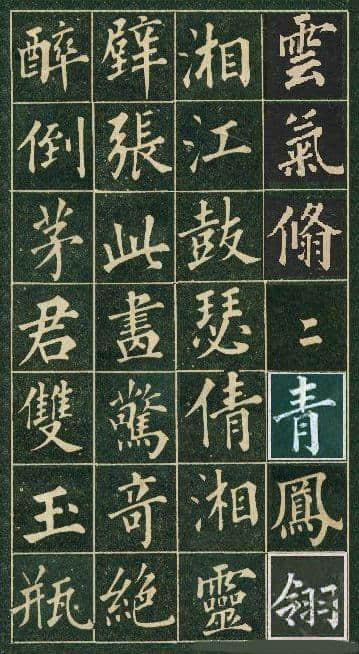 雲氣翛二青鳳翎
湘江鼓瑟倩湘靈
壁張此畫驚奇絕
醉倒茅君雙玉瓶